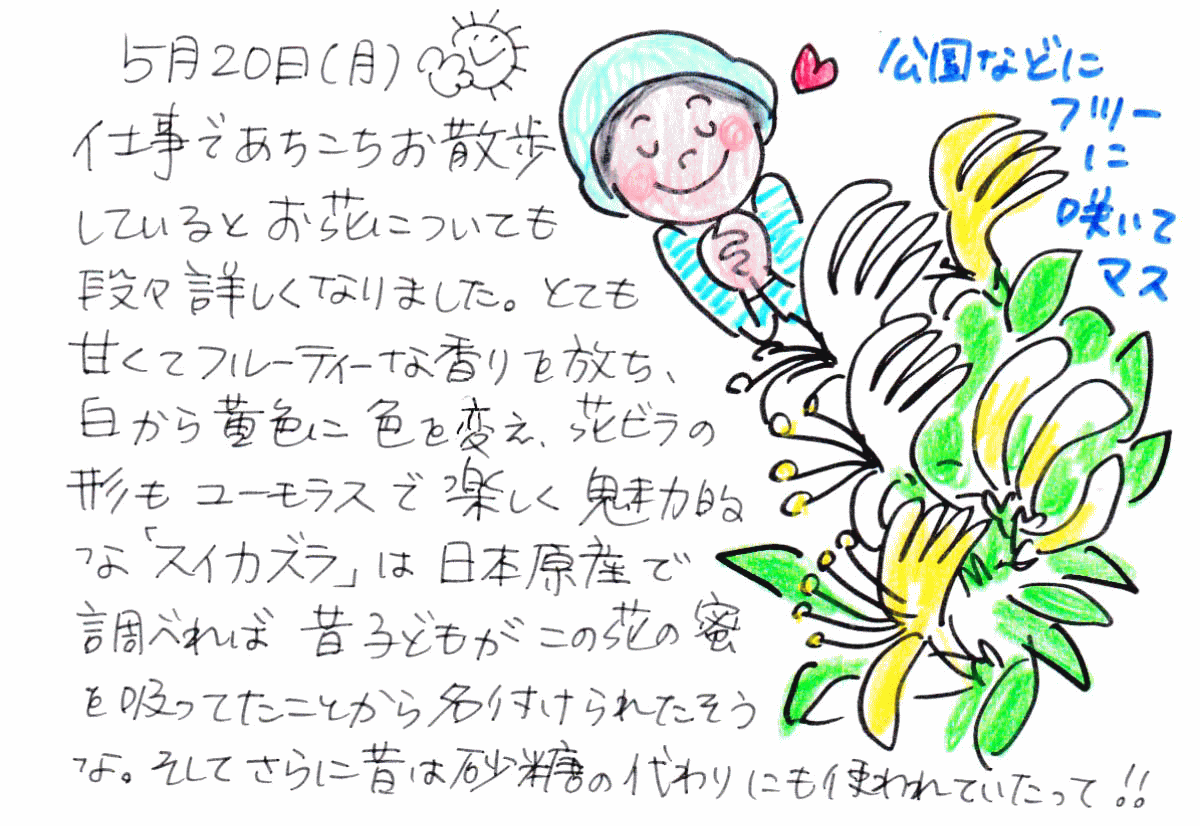 5月20日(月)
仕事であちこちお散歩
しているとお花についても
段々詳しくなりました。とても
甘くてフルーティーな香りを放ち、
白から黄色に色を変え、花ビラの
形もユーモラスで楽しく魅力的
な「スイカズラ」は日本原産で
調べれば昔子どもがこの花の蜜
を吸ってたことから名付けられたそう
な。そしてさらに昔は砂糖の代わりにも使われていたって!!
公園などに
フツー
に
咲いて
マス